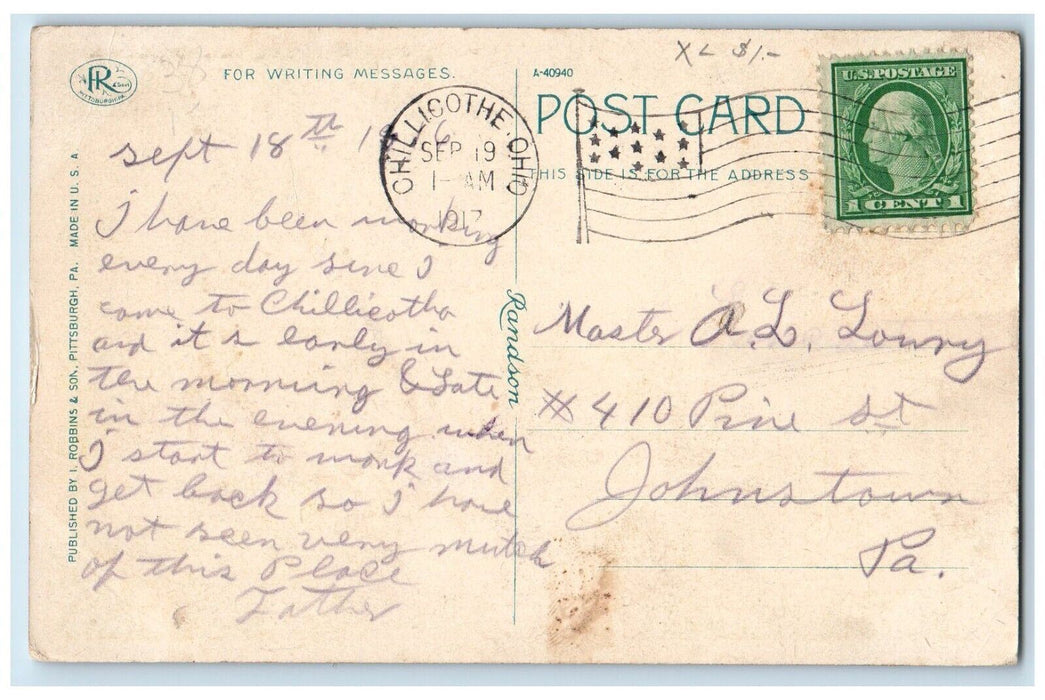 FOR WRITING MESSAGES.
A-40940
X L $1.-
R
PITTSBURGH, PA.
POST CARD
THIS SIDE IS FOR THE ADDRESS
CHILLICOTHE OHIO
SEP 19
1- AM
1917
U.S. POSTAGE
1 CENT 1
PUBLISHED BY I. ROBBINS & SON, PITTSBURGH, PA. MADE IN U. S. A
Sept 18th
I have been working
every day sine I
come to Chillicotha
and it s early in
the morning & Late
in the evening when
I start to work and
get back so I have
not seen very mutch
of this Place
Father
Randson
Master A.L. Lowry
# 410 Pine St
Johnstown
Pa.